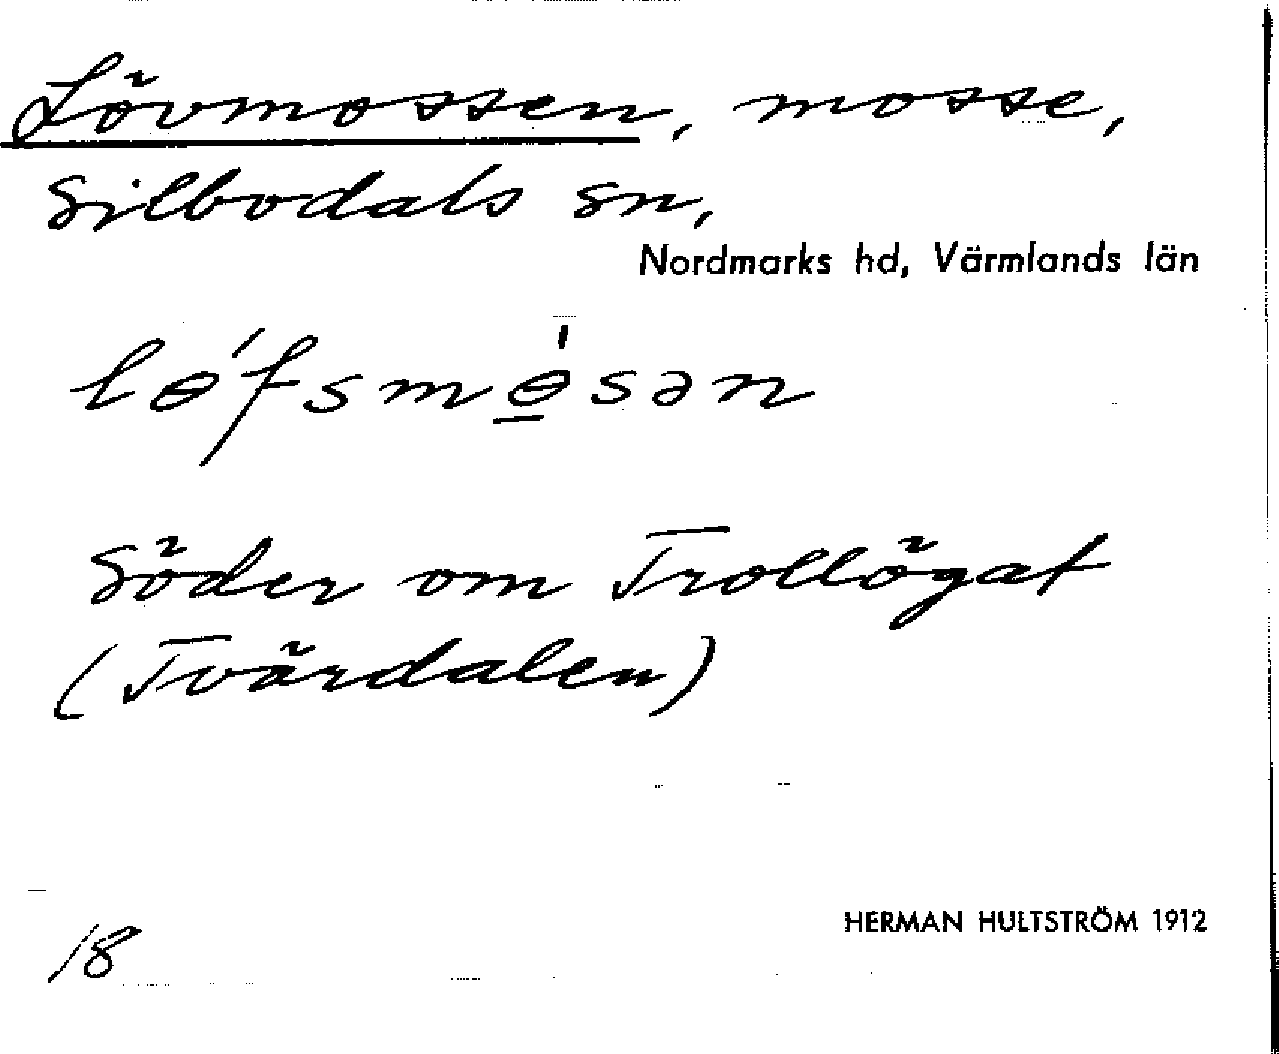 Lövmossen, mosse,
Silbodals sn,
Nordmarks hd, Värmlands län
lɵ́fsmɵ̱́sən
Söder om Trollögat
(Tvärdalen)
18
HERMAN HULTSTRÖM 1912